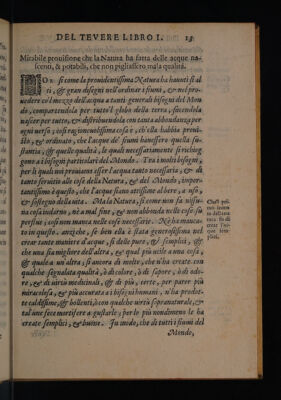 DEL TEVERE LIBRO I. 13
Mirabile prouisione che la Natura ha fatta delle acque na-
scenti, & potabili, che non pigliassero mala qualità.
OR si come la prouidentissima Natura ha hauuti sì al
ti, & gran disegni nell'ordinar i fiumi, & nel pro
ueder col mezzo dell'acqua a tanti generali bisogni del Mon
do, compartendola per tutto'l globo della terra, facendola
nascer per tutto, & distribuendola con tanta abbondanza per
ogni verso; così ragioneuolissima cosa è, ch'ella habbia proui-
sto, & ordinato, che l'acque de' fiumi hauessero quella so-
stantia, & quelle qualità, le quali necessariamente si richieg-
gono a i bisogni particolari del Mondo. Tra i molti bisogni,
per li quali noi prouiamo esser l'acqua tanto necessaria, & di
tanto seruitio alle cose della Natura, & del Mondo, impor-
tantissimo è questo, che l'acque siano attissime al bere, a uso,
& sostegno della vita. Ma la Natura, si come non fa nissu-
na cosa indarno, nè a mal fine, & non abbonda nelle cose su
perflue; così non manca nelle cose necessarie. Nè ha manca-
to in questo, anzi che, se ben ella è stata generosissima nel
crear tante maniere d'acque, sì delle pure, & semplici, che
che una sia migliore dell'altra, & qual più utile a una cosa,
& quale a un'altra, sì ancora di molte, che n'ha create con
qualche segnalata qualità, ò di colore, ò di sapore, ò di odo-
re, & di virtù medicinali, & di più, per parer più
miracolosa, & più accurata a i bisogni humani, n'ha prodot-
te caldissime, & bollenti, & con qualche virtù sopranaturale, &
tal une forse mortifere a gustarle, per lo più nondimeno le ha
create semplici, & buone. In modo, che di tutti i fiumi del
Mondo,
la Natura